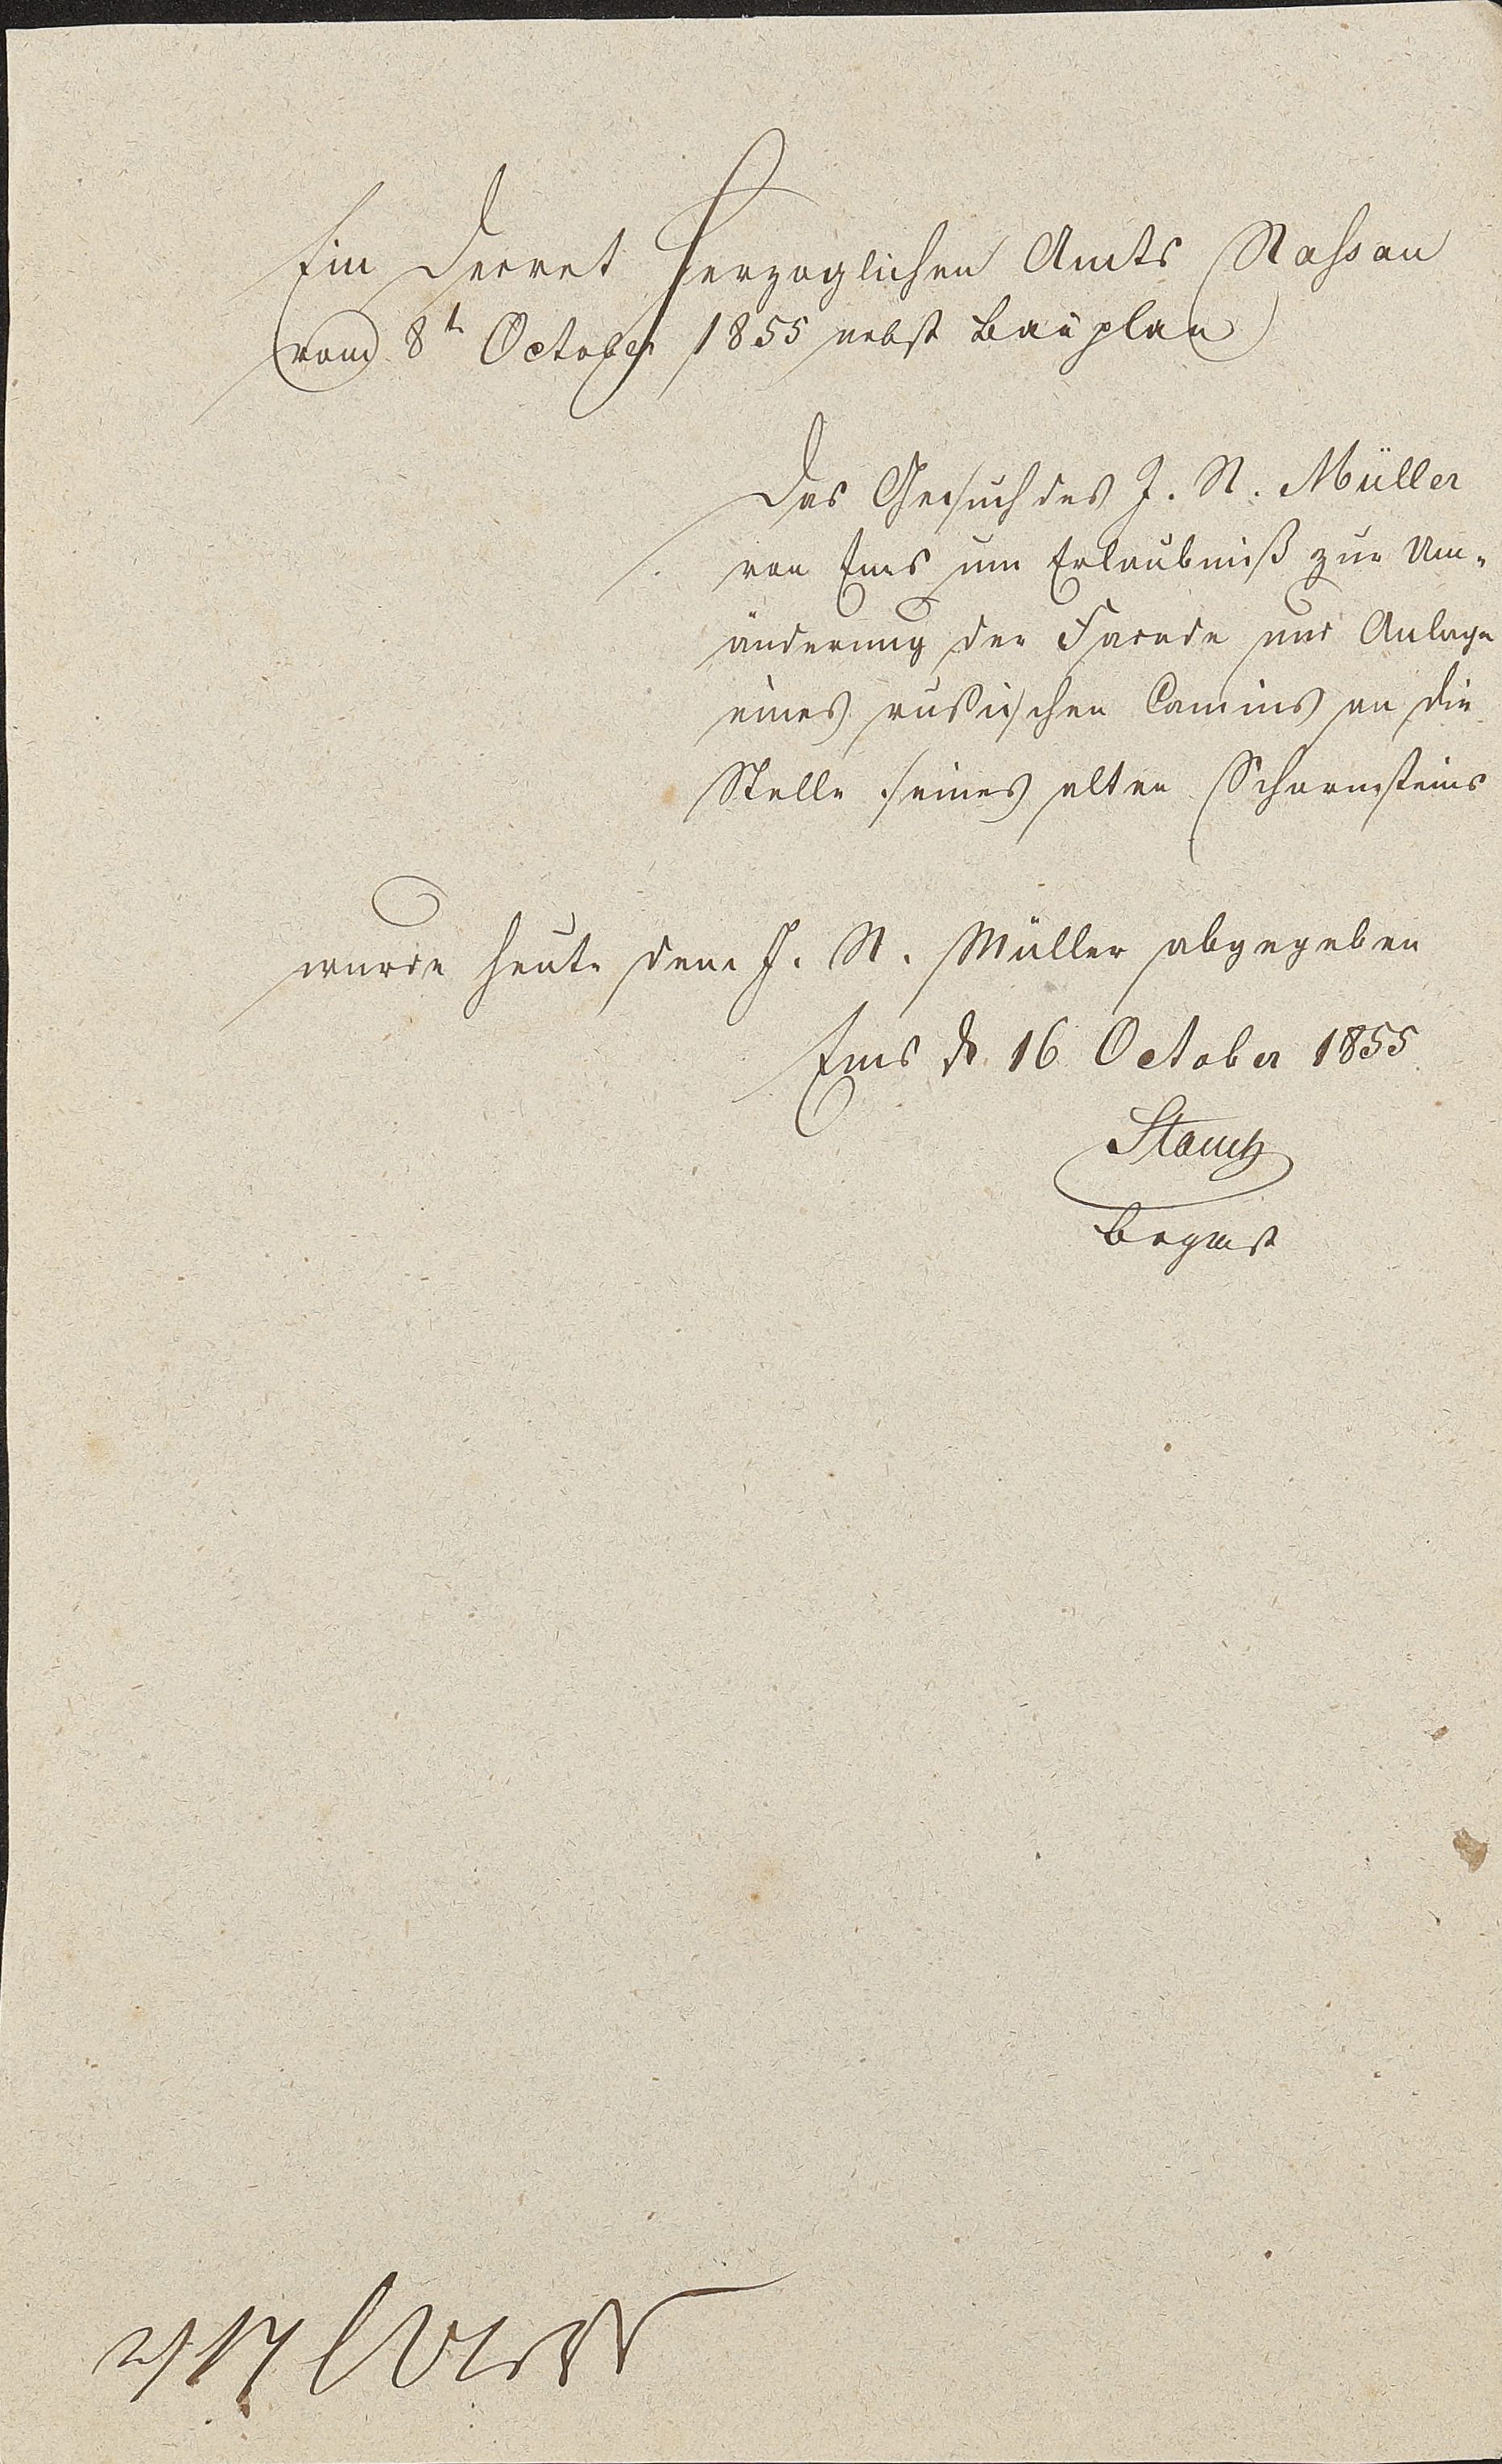 Ein Decret Herzoglichen Amts Nassau
vom 8t October 1855 nebst Bauplan
Das Gesuch des J. N. Müller
von Ems um Erlaubniß zur Um-
änderung der Facade und Anlage
eines russischen Camins an die
Stelle seines alten Schornsteins
wurde heute dem J. N. Müller abgegeben
Ems d 16 October 1855